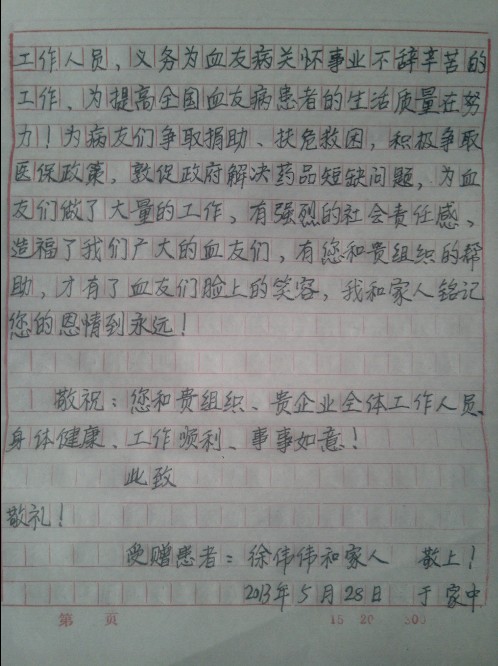 工作人员，义务为血友病关怀事业不辞辛苦的
工作、为提高全国血友病患者的生活质量在努
力！为病友们争取捐助、扶危救困，积极争取
医保政策，敦促政府解决药品短缺问题，为血
友们做了大量的工作，有强烈的社会责任感、
造福了我们广大的血友们，有您和贵组织的帮
助，才有了血友们脸上的笑容，我和家人铭记
您的恩情到永远！
敬祝：您和贵组织、贵企业全体工作人员
身体健康、工作顺利、事事如意！
此致
敬礼！
受赠患者：徐伟伟和家人 敬上！
2013年5月28日 于家中
第 页 15×20=300